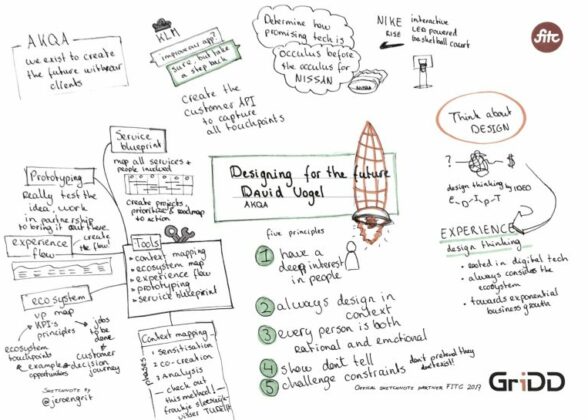 AKQA
we exist to create
the future with our
clients
KLM
improve our app?
sure, but take
a step back
Create the
customer API
to capture
all touchpoints
Determine how
promising tech is
OCCULUS before
the occulus for
NISSAN
NISSAN
NIKE
RISE
interactive
LED powered
basketball court
fitc
Think about
DESIGN
?
$
design thinking by IDEO
E-D-I-P-T
EXPERIENCE
design thinking
• rooted in digital tech
• always considers the
ecosystem
• towards exponential
business growth
Designing for the future
David Vogel
AKQA
five principles
1 have a
deep interest
in people
2 always design in
context
3 every person is both
rational and emotional
4 show don't tell
5 challenge constraints
don't pretend they
don't exist!
Service
blueprint
map all services +
people involved
create projects,
prioritize & roadmap
to action
Prototyping
Really test the
idea, work
in partnership
to bring it out there.
experience
flow
create
the flow!
Tools
• context mapping
• ecosystem map
• experience flow
• prototyping
• service blueprint
ecosystem
vp map
KPI's
principles
jobs
to be
done
ecosystem
touchpoints
& example
opportunities
customer
decision
journey
Context mapping
phases
1 sensitisation
2 co-creation
3 Analysis
check out
this method!
froukje sleeswijk
visser TUDelft
SKETCHNOTE BY
@jeroengrit
OFFICIAL SKETCHNOTE PARTNER FITC 2017
GriDD